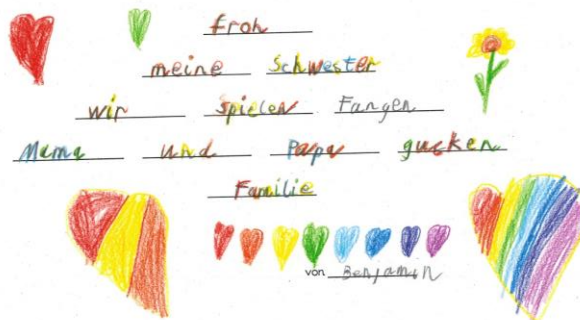 froh
meine Schwester
wir spielen Fangen
Mama und Papa gucken
Familie
von Benjamin